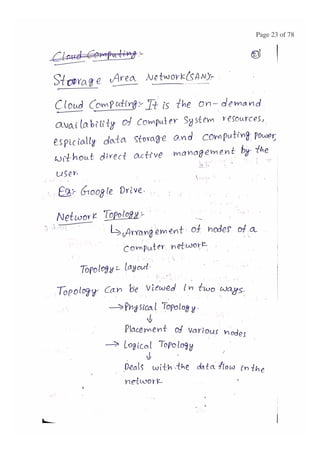 Page 23 of 78
Cloud Computing:-
Storage Area Network(SAN):-
Cloud Computing:- It is the on-demand
availability of computer system resources,
espicially data storage and computing power,
without direct active management by the
user.
Eg:- Google Drive.
Network Topology:-
↳Arrangement of nodes of a
computer network
Topology = layout
Topology can be viewed in two ways.
→Physical Topology.
↓
Placement of various nodes
→ Logical Topology
↓
Deals with the data flow in the
network